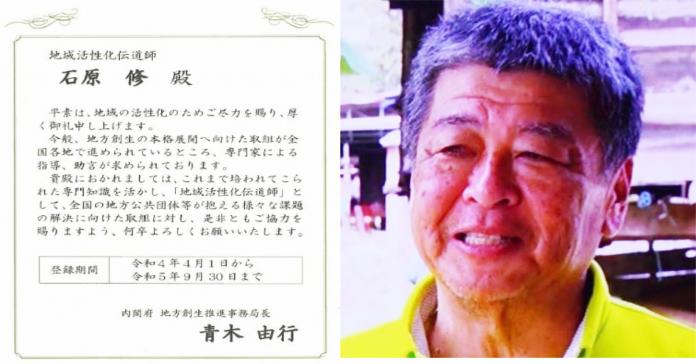 地域活性化伝道師
石原 修 殿
平素は、地域の活性化のためご尽力を賜り、厚
く御礼申し上げます。
今般、地方創生の本格展開へ向けた取組が全
国各地で進められているところ、専門家による
指導、助言が求められております。
貴殿におかれましては、これまで培われてこら
れた専門知識を活かし、「地域活性化伝道師」と
して、全国の地方公共団体等が抱える様々な課題
の解決に向けた取組に対し、是非ともご協力を
賜りますよう、何卒よろしくお願いいたします。
登録期間
令和4年4月1日から
令和5年9月30日まで
内閣府 地方創生推進事務局長
青木 由行